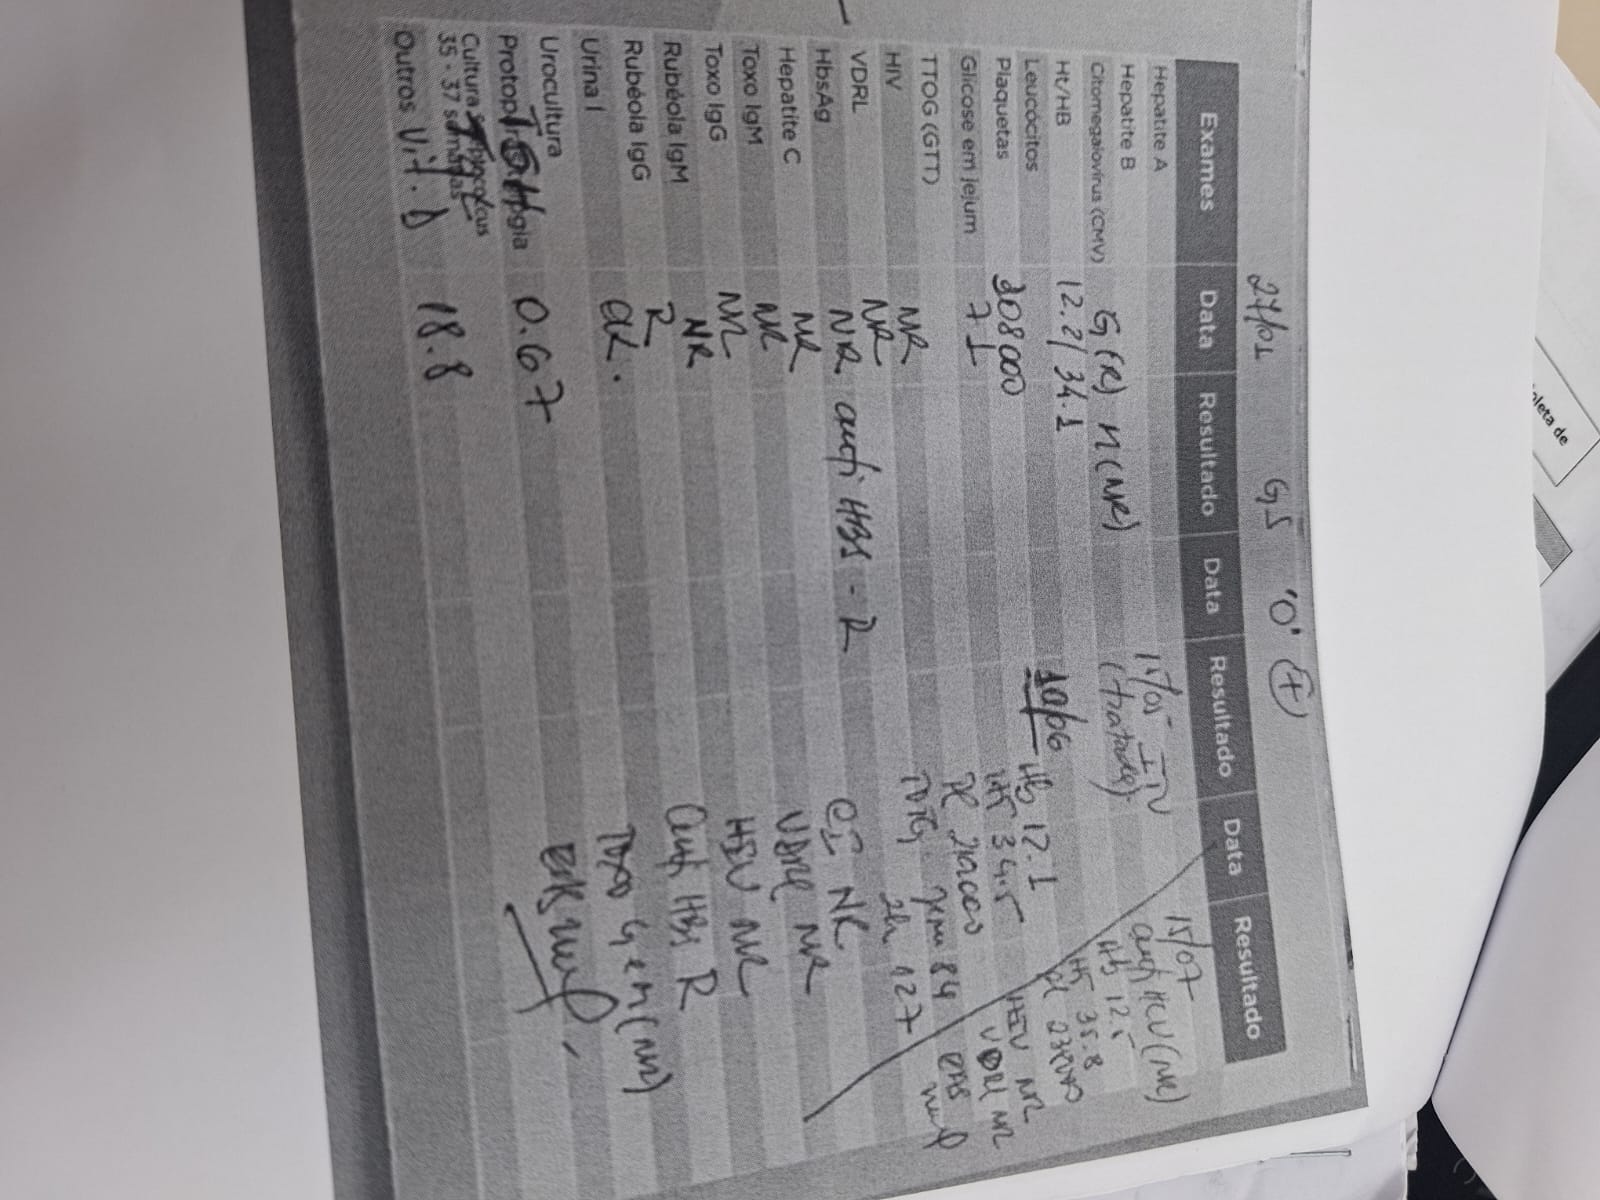 27/01 GS 'O' +
Exames Data Resultado Data Resultado Data Resultado
Hepatite A
Hepatite B
Citomegalovírus (CMV) G (R) M (NR)
Ht/HB 12.2/34.1
Leucócitos
Plaquetas 208000
Glicose em jejum 71
TTOG (GTT)
HIV NR
VDRL NR
HbsAg NR anti HBS - R
Hepatite C NR
Toxo IgM NR
Toxo IgG NR
Rubéola IgM NR
Rubéola IgG R
Urina I
Urocultura
TSH 0.67
35 - 37 semanas
Outros Vit. D 18.8
15/05 ITU
(tratada)
10/06 Hb 12.1
Ht 34.5
TOTG 84
2h 127
CI NR
VDRL NR
HIV NR
Anti HBS R
Toxo G e M (NR)
15/07
anti HCV (NR)
Hb 12.5
Ht 35.8
HIV NR
VDRL NR
EAS
pleta de